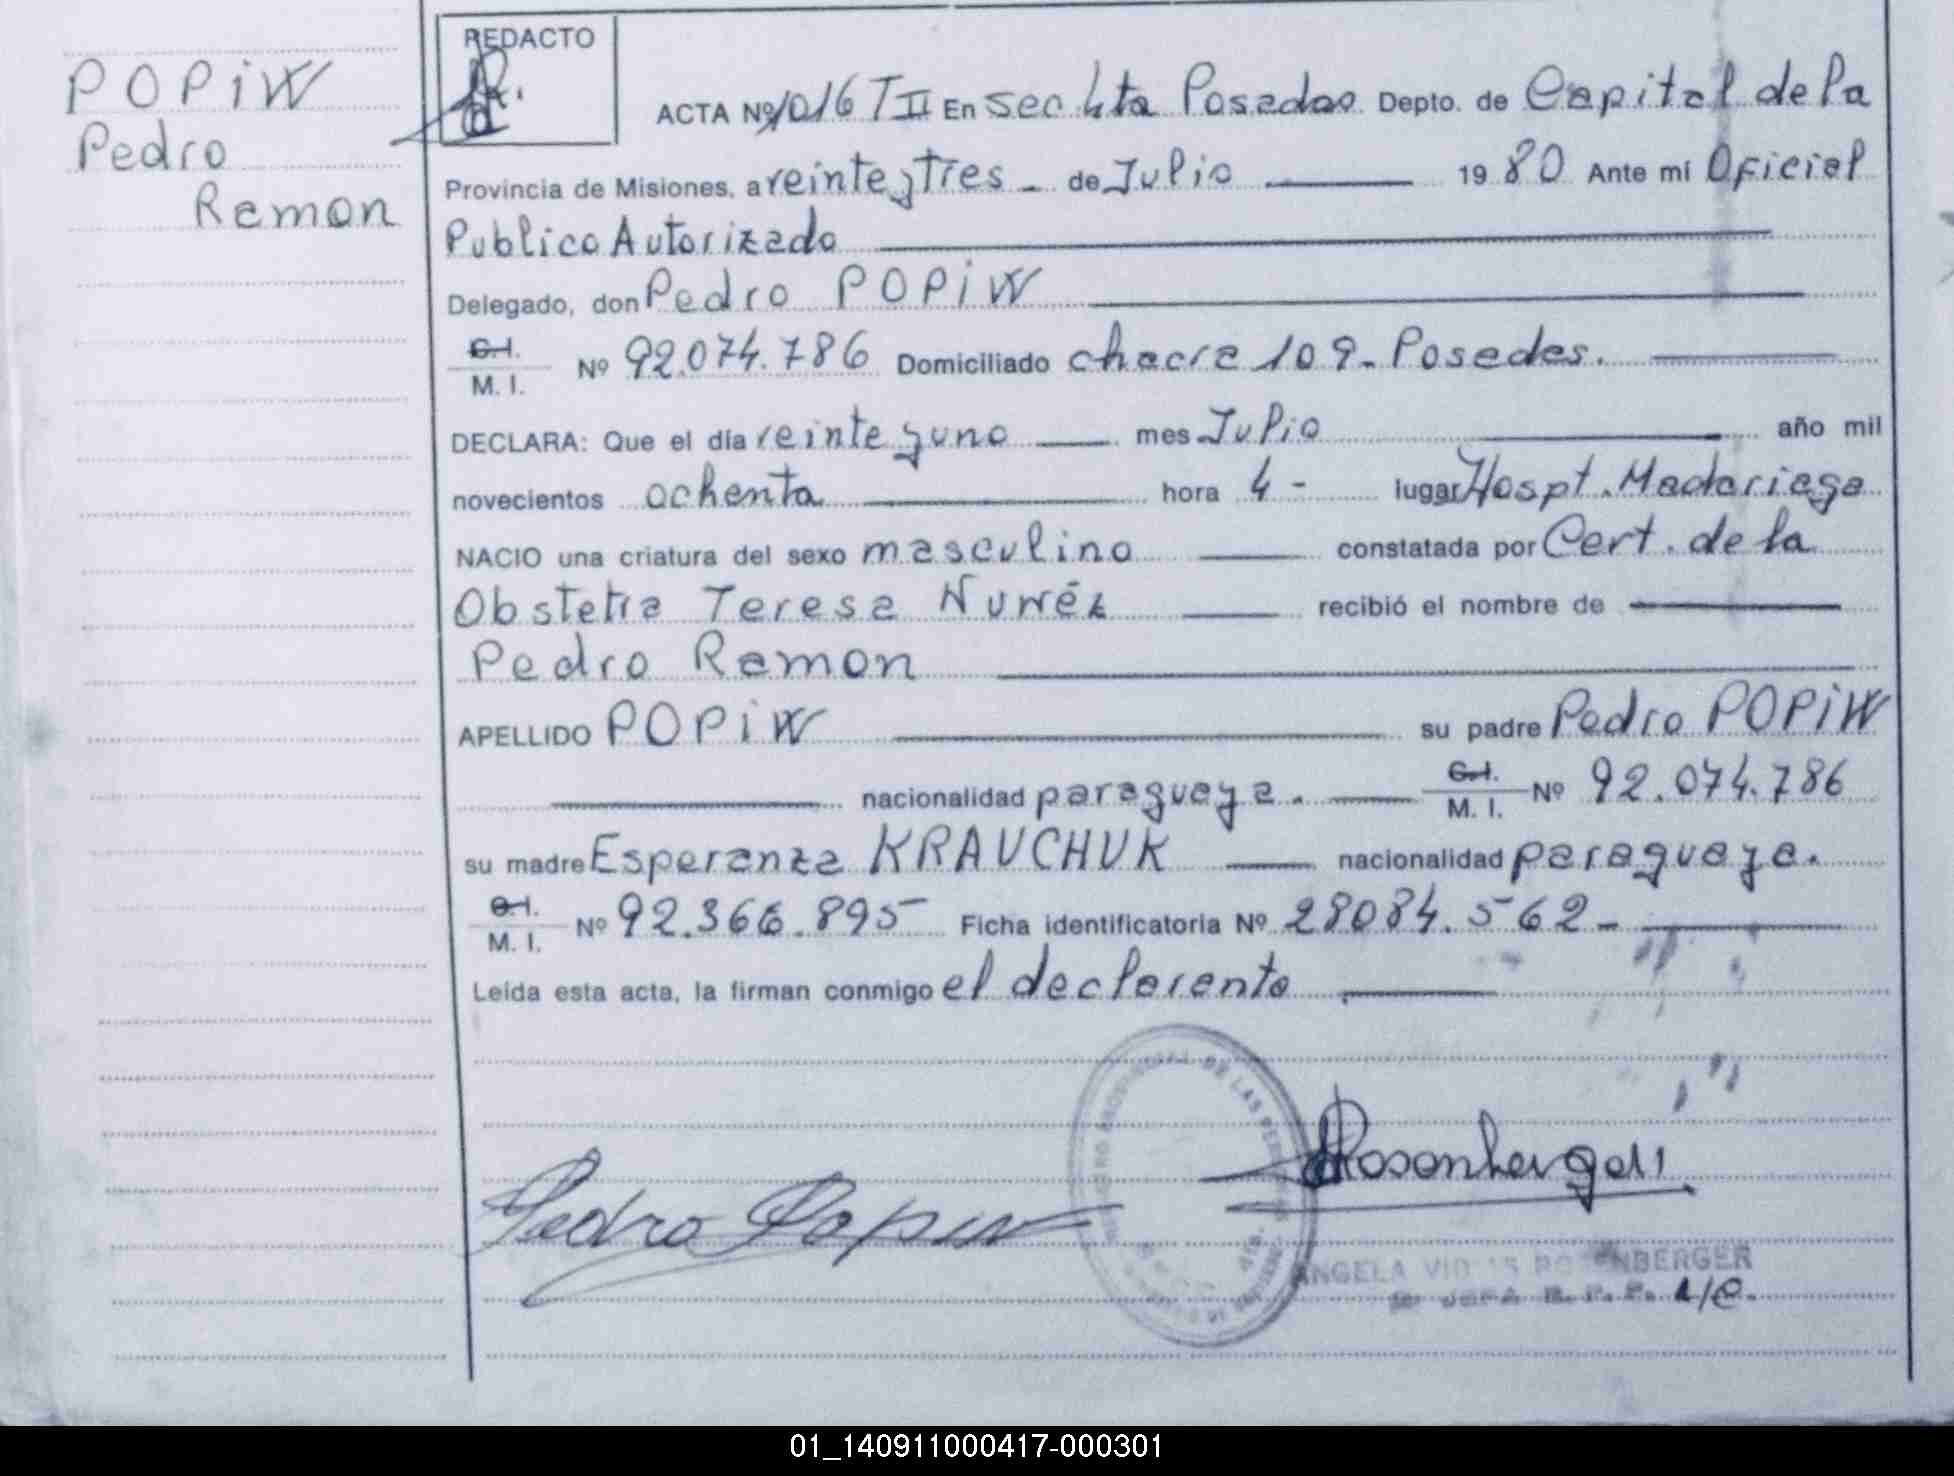 POPiW
Pedro
Ramon
REDACTO
ACTA Nº 1016 T II En Sec 4ta Posadas Depto. de Capital de la
Provincia de Misiones, a veinte y Tres - de Julio 19 80 Ante mi Oficial
Publico Autorizado
Delegado, don Pedro POPiW
C.I.
M. I. Nº 92.074.786 Domiciliado chacra 109 - Posadas.
DECLARA: Que el día veinte y uno mes Julio año mil
novecientos ochenta hora 4 - lugar Hospt. Madariaga
NACIO una criatura del sexo masculino constatada por Cert. de la
Obstetra Teresa Nuñéz recibió el nombre de
Pedro Ramon
APELLIDO POPiW su padre Pedro POPiW
nacionalidad paraguaya. C.I.
M. I. Nº 92.074.786
su madre Esperanza KRAUCHUK nacionalidad paraguaya.
C.I.
M. I. Nº 92.366.895 Ficha identificatoria Nº 28084.562 -
Leída esta acta, la firman conmigo el declarante
DE LAS PER
Pedro Popiw
Rosenberger
ANGELA ROSENBERGER
JEFA R. P. P. A/C.
01_140911000417-000301